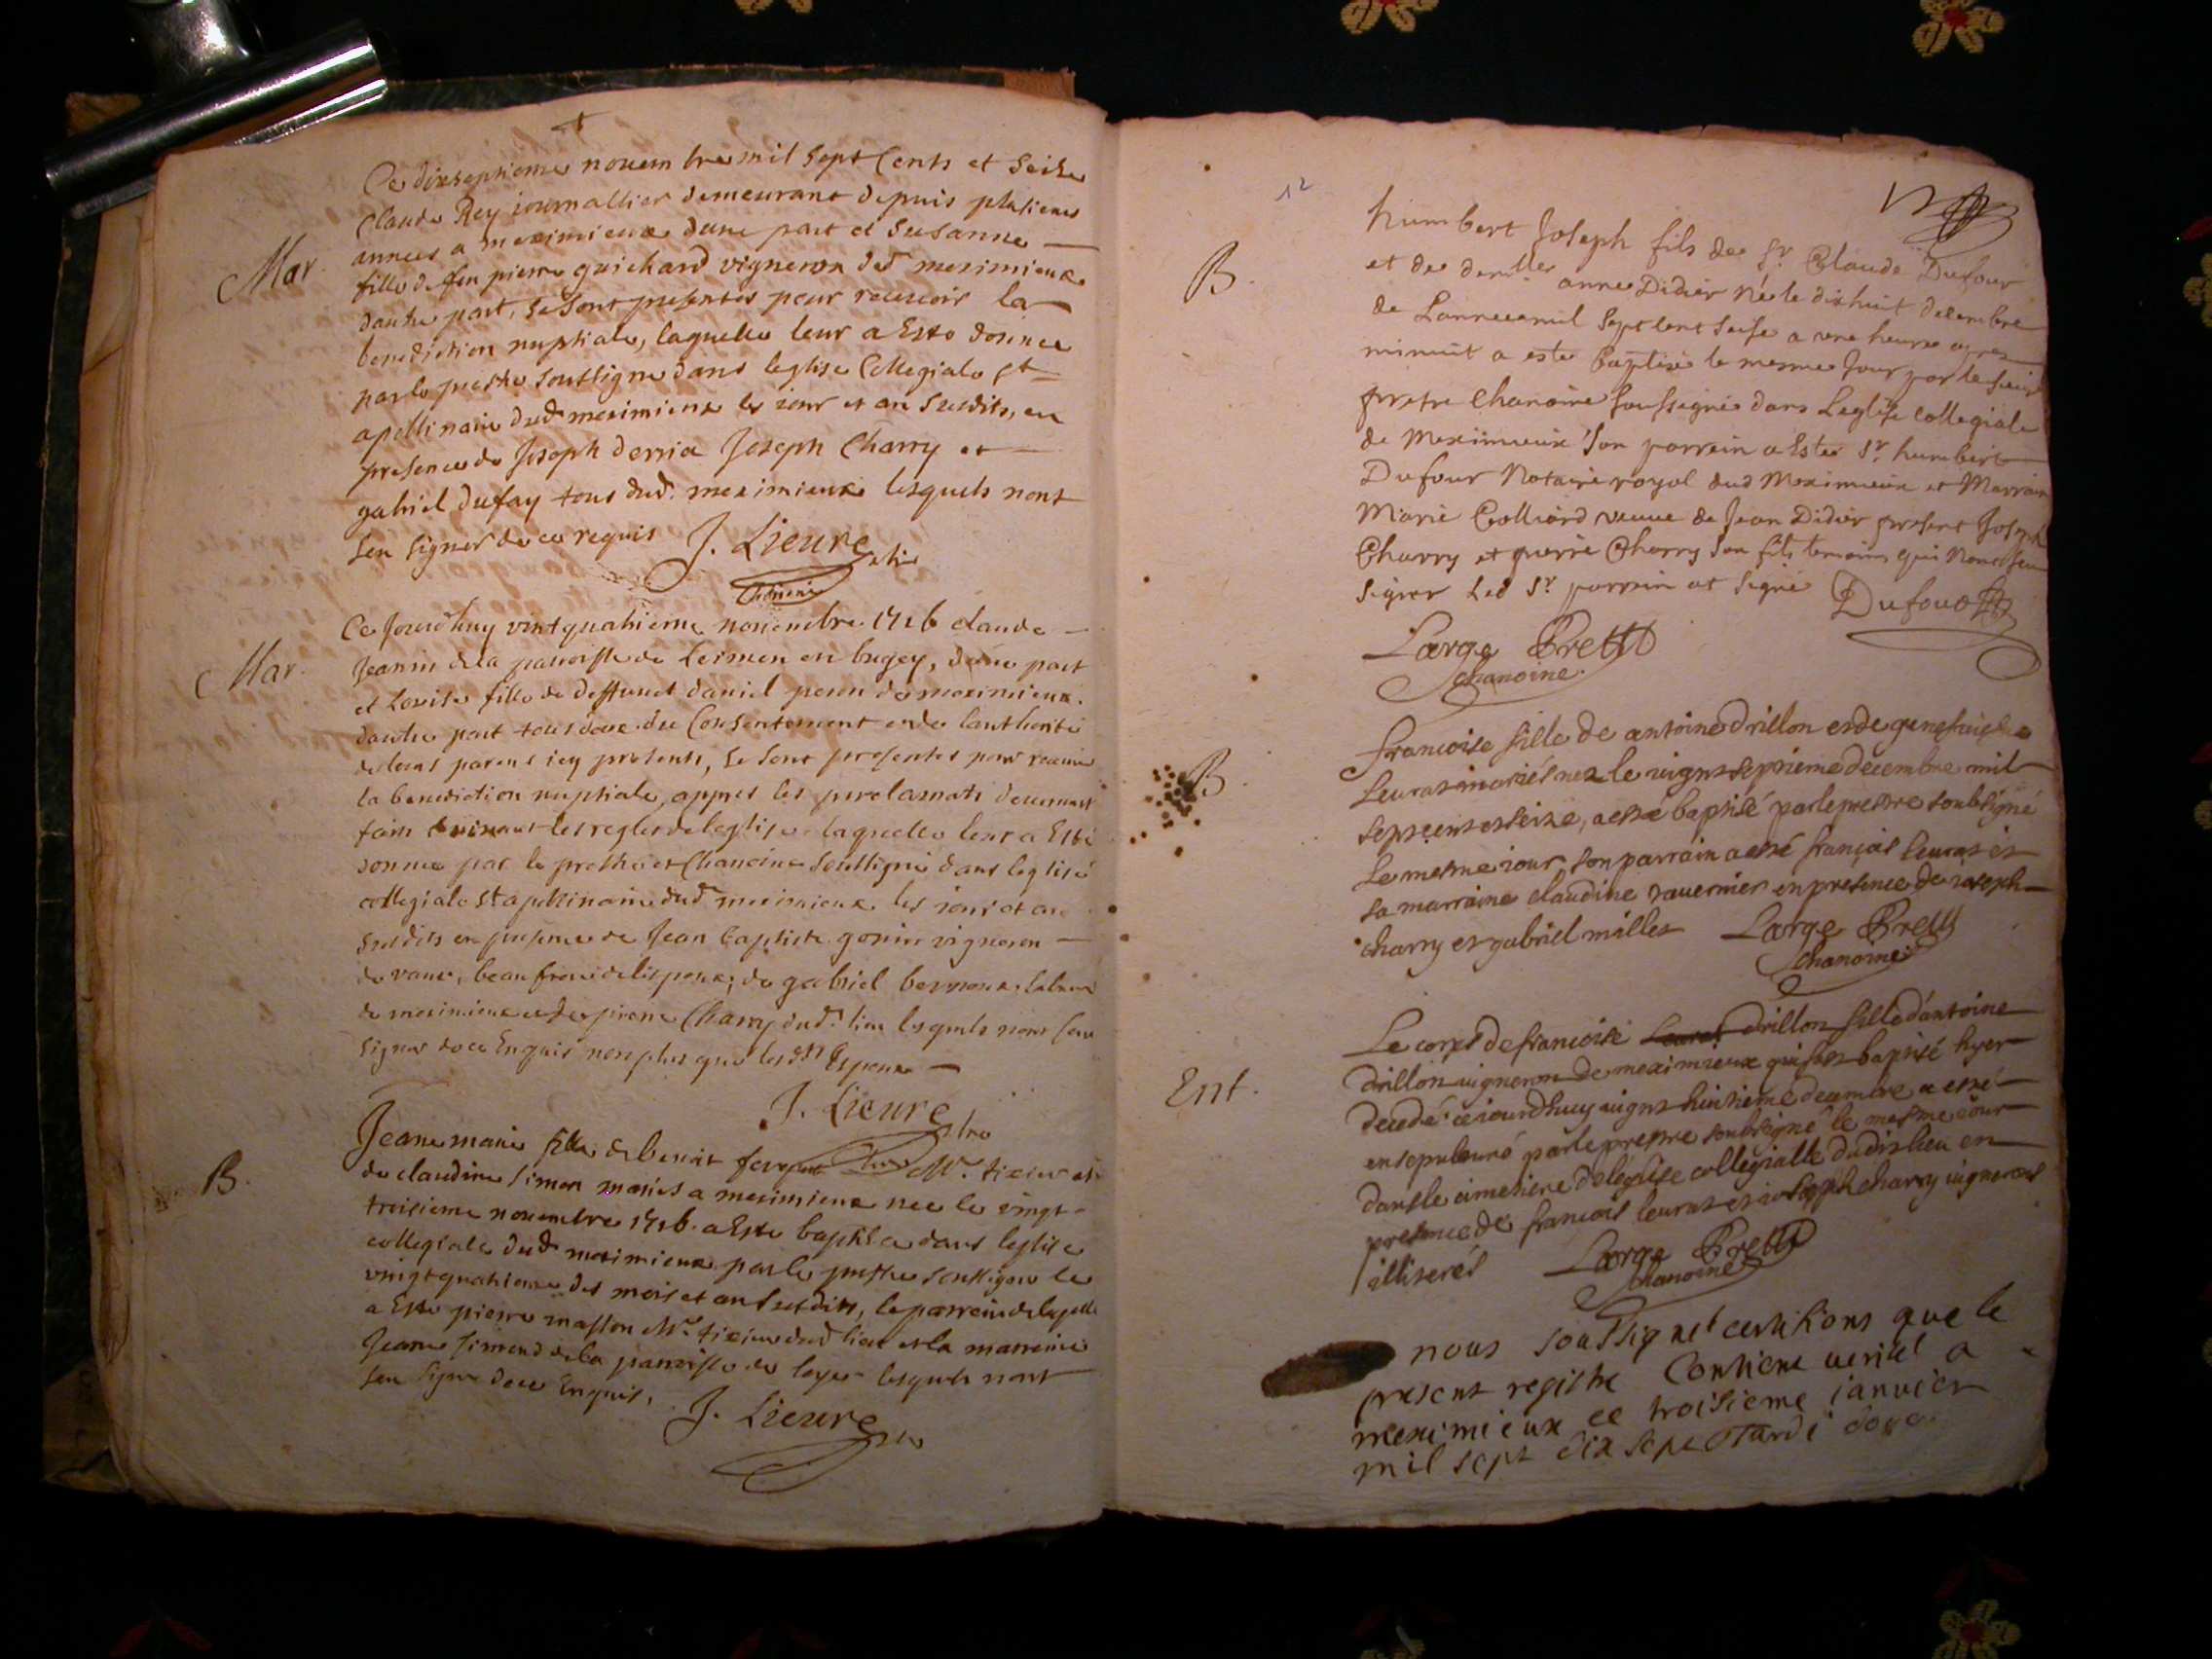 Ce dixseptieme novembre mil sept Cents et seize
Claude Rey journallier demeurant depuis plusieurs
Mar.
annees a meximieux dune part et Susanne
fille de feu pierre guichard vigneron dud meximieux
dautre part, se sont presentes pour recevoir la
benediction nuptiale, laquelle leur a Esté donnee
par le prestre soussigne dans leglise Collegiale St
apollinaire dud meximieux les jour et an susdits, en
presence de Joseph derria Joseph Charry et
gabriel dufay tous dud. meximieux lesquels nont
sceu signer de ce requis J. Lieure
Ce Jourdhuy vint quatrieme novembre 1716 claude
Mar.
Jeannin de la paroisse de Leimen en bugey, dune part
et Louise fille de deffunct daniel peron de meximieux.
dautre part tous deux du Consentement et de lauthorite
de leurs parens icy presents, se sont presentes pour recevoir
la benediction nuptiale, appres les proclamats deuement
faits suivant les regles de leglise laquelle leur a Esté
donnee par le prestre et Chanoine soussigné dans leglise
collegiale St apollinaire dud meximieux les jour et an
susdits en presence de Jean baptiste gonin vigneron
de vaux, beau frere de lespoux, de gabriel
de meximieux et de pierre Charry dud. lieu lesquels nont sceu
signer de ce Enquis non plus que lesdts Espoux
J. Lieure
Jeane marie fille de benoit mr. tixier et
B.
de claudine simon mariés a meximieux nee le vingt
troisieme novembre 1716. a Esté baptisée dans leglise
collegiale dud meximieux par le prestre soussigne le
vingt quatrieme des mois et an susdits, le parrein de laquelle
a Esté pierre masson mr. tixier dud lieu et la marreine
Jeane simond de la paroisse de loyes lesquels nont
sceu signer de ce Enquis,
J. Lieure
12
humbert Joseph fils de Sr. Claude Dufour
B.
et de demlle anne Didier né le dixhuit decembre
de Lannee mil sept cent seise a une heure apres
minuit a esté baptisé le mesme Jour par le
pretre Chanoine soussigné dans Leglise collegiale
de Meximieux son parrein a Esté Sr. humbert
Dufour Notaire royal dud Meximieux et Marraine
Marie Colliard veuve de Jean Didier present Joseph
Charry et pierre Charry son fils temoins qui nont sceu
signer Led Sr parrein at signé Dufour
Large Pretre
Chanoine.
francoise fille de antoine drillon et de genefuiefue
B.
leuras mariés nez le vignt septieme decembre mil
sept cent et seize, a esté baptisé par le prestre soubsigné
le mesme iour son parrain a esté françois leuras et
sa marraine claudine tavernier en presence de ioseph
charry et gabriel millet Large Pretre
Chanoine
Le corps de francoise Leuras drillon fille dantoine
Ent.
drillon vigneron de meximieux qui fut baptisé hyer
decedé ceiourdhuy vignt huitieme decembre a esté
ensepulturé par le prestre soubsigné le mesme iour
dans le cimetiere de leglise collegialle dudit lieu en
presence de francois leuras et ioseph charry vignerons
illiterés Large Pretre
Chanoine
nous soussignes certifions que le
present registre Contient verité a
meximieux ce troisieme ianvier
mil sept dix sept